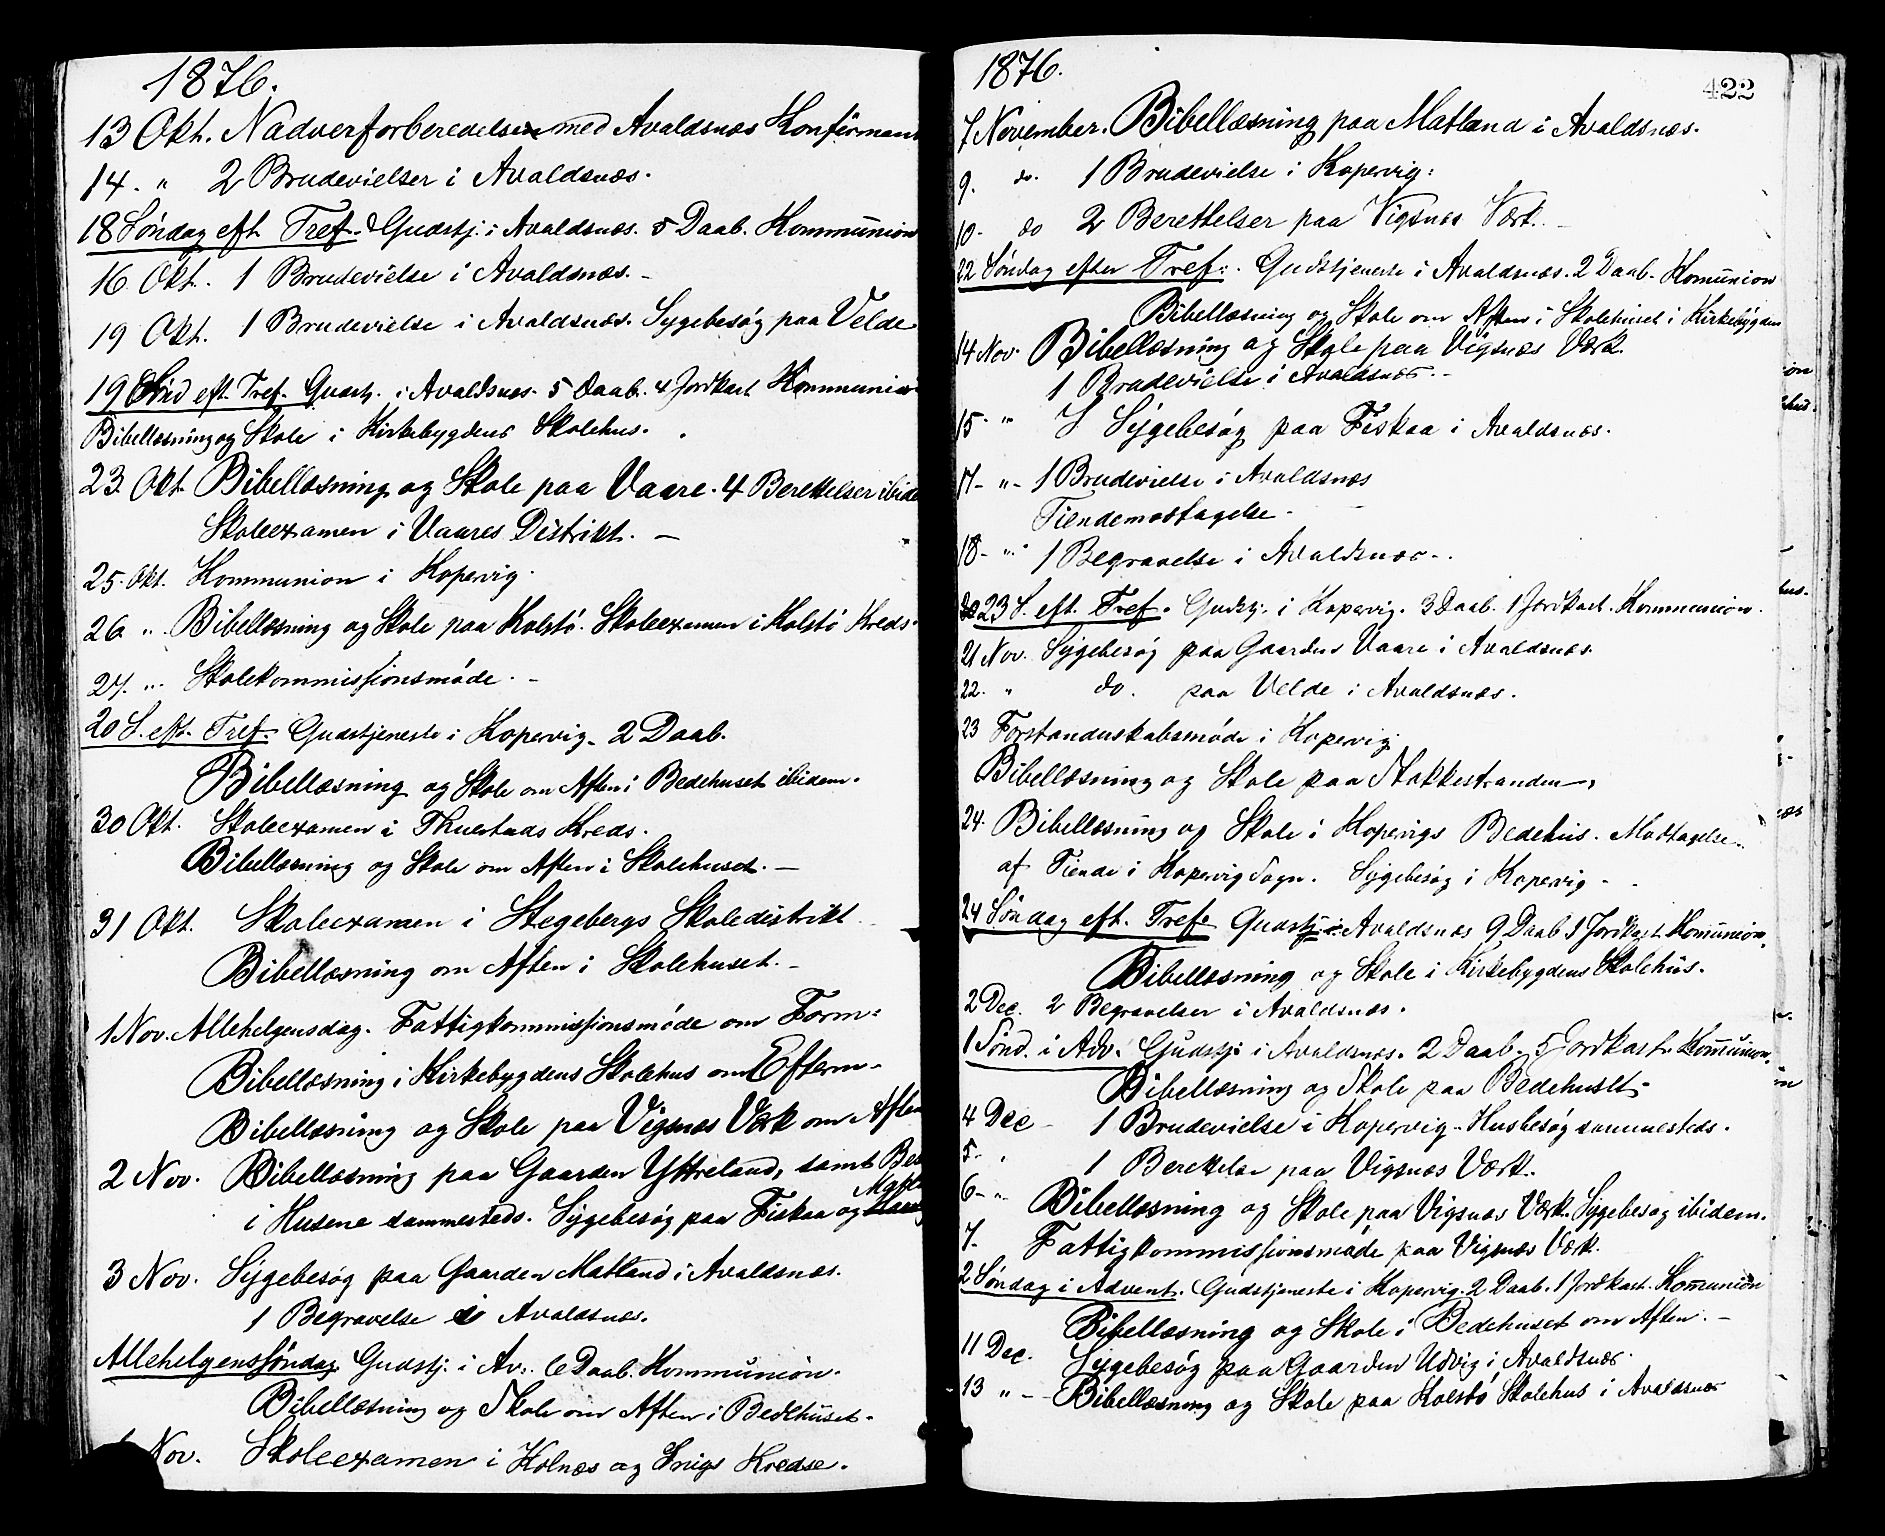 1876.
13 Okt. Nadverforberedelse med Avaldsnæs Konfirmant
14. " 2 Brudevielser i Avaldsnæs.
18 Søndag eft Tref. Gudstj. i Avaldsnæs. 5 Daab. Kommunion
16 Okt. 1 Brudevielse i Avaldsnæs. -
19 Okt. 1 Brudevielse i Avaldsnæs. Sygebesøg paa Velde
19 Sønd eft. Tref. Gudstj. i Avaldsnæs. 5 Daab. 4 Jordkast Kommunion
Bibellæsning og Skole i Kirkebygdens Skolehus.
23 Okt Bibellæsning og Skole paa Vaare. 4 Berettelser ibide
Skoleexamen i Vaares Distrikt. -
25. Okt. Kommunion i Kopervig.
26 " Bibellæsning og Skole paa Kolstø. Skoleexamen i Kolstø Kreds.
27. " Skolekommissionsmøde. -
20 S. eft. Tref. Gudstjeneste i Kopervig. 2 Daab.
Bibellæsning og Skole om Aften i Bedehuset ibidem.
30 Okt. Skoleexamen i Thuestads Kreds.
Bibellæsning og Skole om Aften i Skolehuset. -
31 Okt. Skoleexamen i Stegebergs Skoledistrikt
Bibellæsning om Aften i Skolehuset. -
1 Nov. Allehelgensdag. Fattigkommissionsmøde om Form:
Bibellæsning i Kirkebygdens Skolehus om Efterm-
Bibellæsning og Skole paa Vigsnæs Værk om Aften
2 Nov. Bibellæsning paa Gaarden Yttreland, samt Bes
i Husene sammesteds. Sygebesøg paa Fiskaa og
3 Nov. Sygebesøg paa Gaarden Matland i Avaldsnæs.
1 Begravelse i Avaldsnæs.
Allehelgenssøndag Gudstj. i Av. 6 Daab. Kommunion.
Bibellæsning og Skole om Aften i Bedehuset.
Nov. Skoleexamen i Kolnæs og Snigs Kredse.
1876.
422
7 November. Bibellæsning paa Matland i Avaldsnæs.
9. do. 1 Brudevielse i Kopervig.
10. do 2 Berettelser paa Vigsnæs Værk. -
22 Søndag efter Tref. Gudstjeneste i Avaldsnæs. 2 Daab. Komunion
Bibellæsning og Skole om Aften i Skolehuset i Kirkebygden
14 Nov. Bibellæsning og Skole paa Vigsnæs Værk.
1 Brudevielse i Avaldsnæs. -
15. " Sygebesøg paa Fiskaa i Avaldsnæs.
17 - " - 1 Brudevielse i Avaldsnæs
Tiendemodtagelse -
18 - " 1 Begravelse i Avaldsnæs -.
23 S. eft. Tref. Gudstj. i Kopervig. 3 Daab. 1 Jordkast. Kommunion.
21 Nov. Sygebesøg paa Gaarden Vaare i Avaldsnæs.
22. " do. paa Velde i Avaldsnæs.
23 Forstanderskabsmøde i Kopervig.
Bibellæsning og Skole paa Stokkestranden.
24. Bibellæsning og Skole i Kopervigs Bedehus. Modtagelse
af Tiende i Kopervig Sogn. Sygebesøg i Kopervig -
24 Søndag eft. Tref. Gudstj i Avaldsnæs 9 Daab 1 Jordkast Komunion.
Bibellæsning og Skole i Kirkebygdens Skolehus.
2 Dec. 2 Begravelser i Avaldsnæs.
1 Sønd. i Adv. Gudstj. i Avaldsnæs. 2 Daab. 5 Jordkast. Komunion.
Bibellæsning og Skole paa Bedehuset.
4 Dec - 1 Brudevielse i Kopervig. Husbesøg sammesteds.
5. " 1 Berettelse paa Vigsnæs Værk.
6 - " Bibellæsning og Skole paa Vigsnæs Værk. Sygebesøg ibidem.
7. Fattigkommissionsmøde paa Vigsnæs Værk.
2 Søndag i Advent. Gudstjeneste i Kopervig. 2 Daab. 1 Jordkast. Komunion
Bibellæsning og Skole i Bedehuset om Aften. -
11 Dec. Sygebesøg paa Gaarden Udvig i Avaldsnæs.
13 " - Bibellæsning og Skole paa Kolstø Skolehus i Avaldsnæs